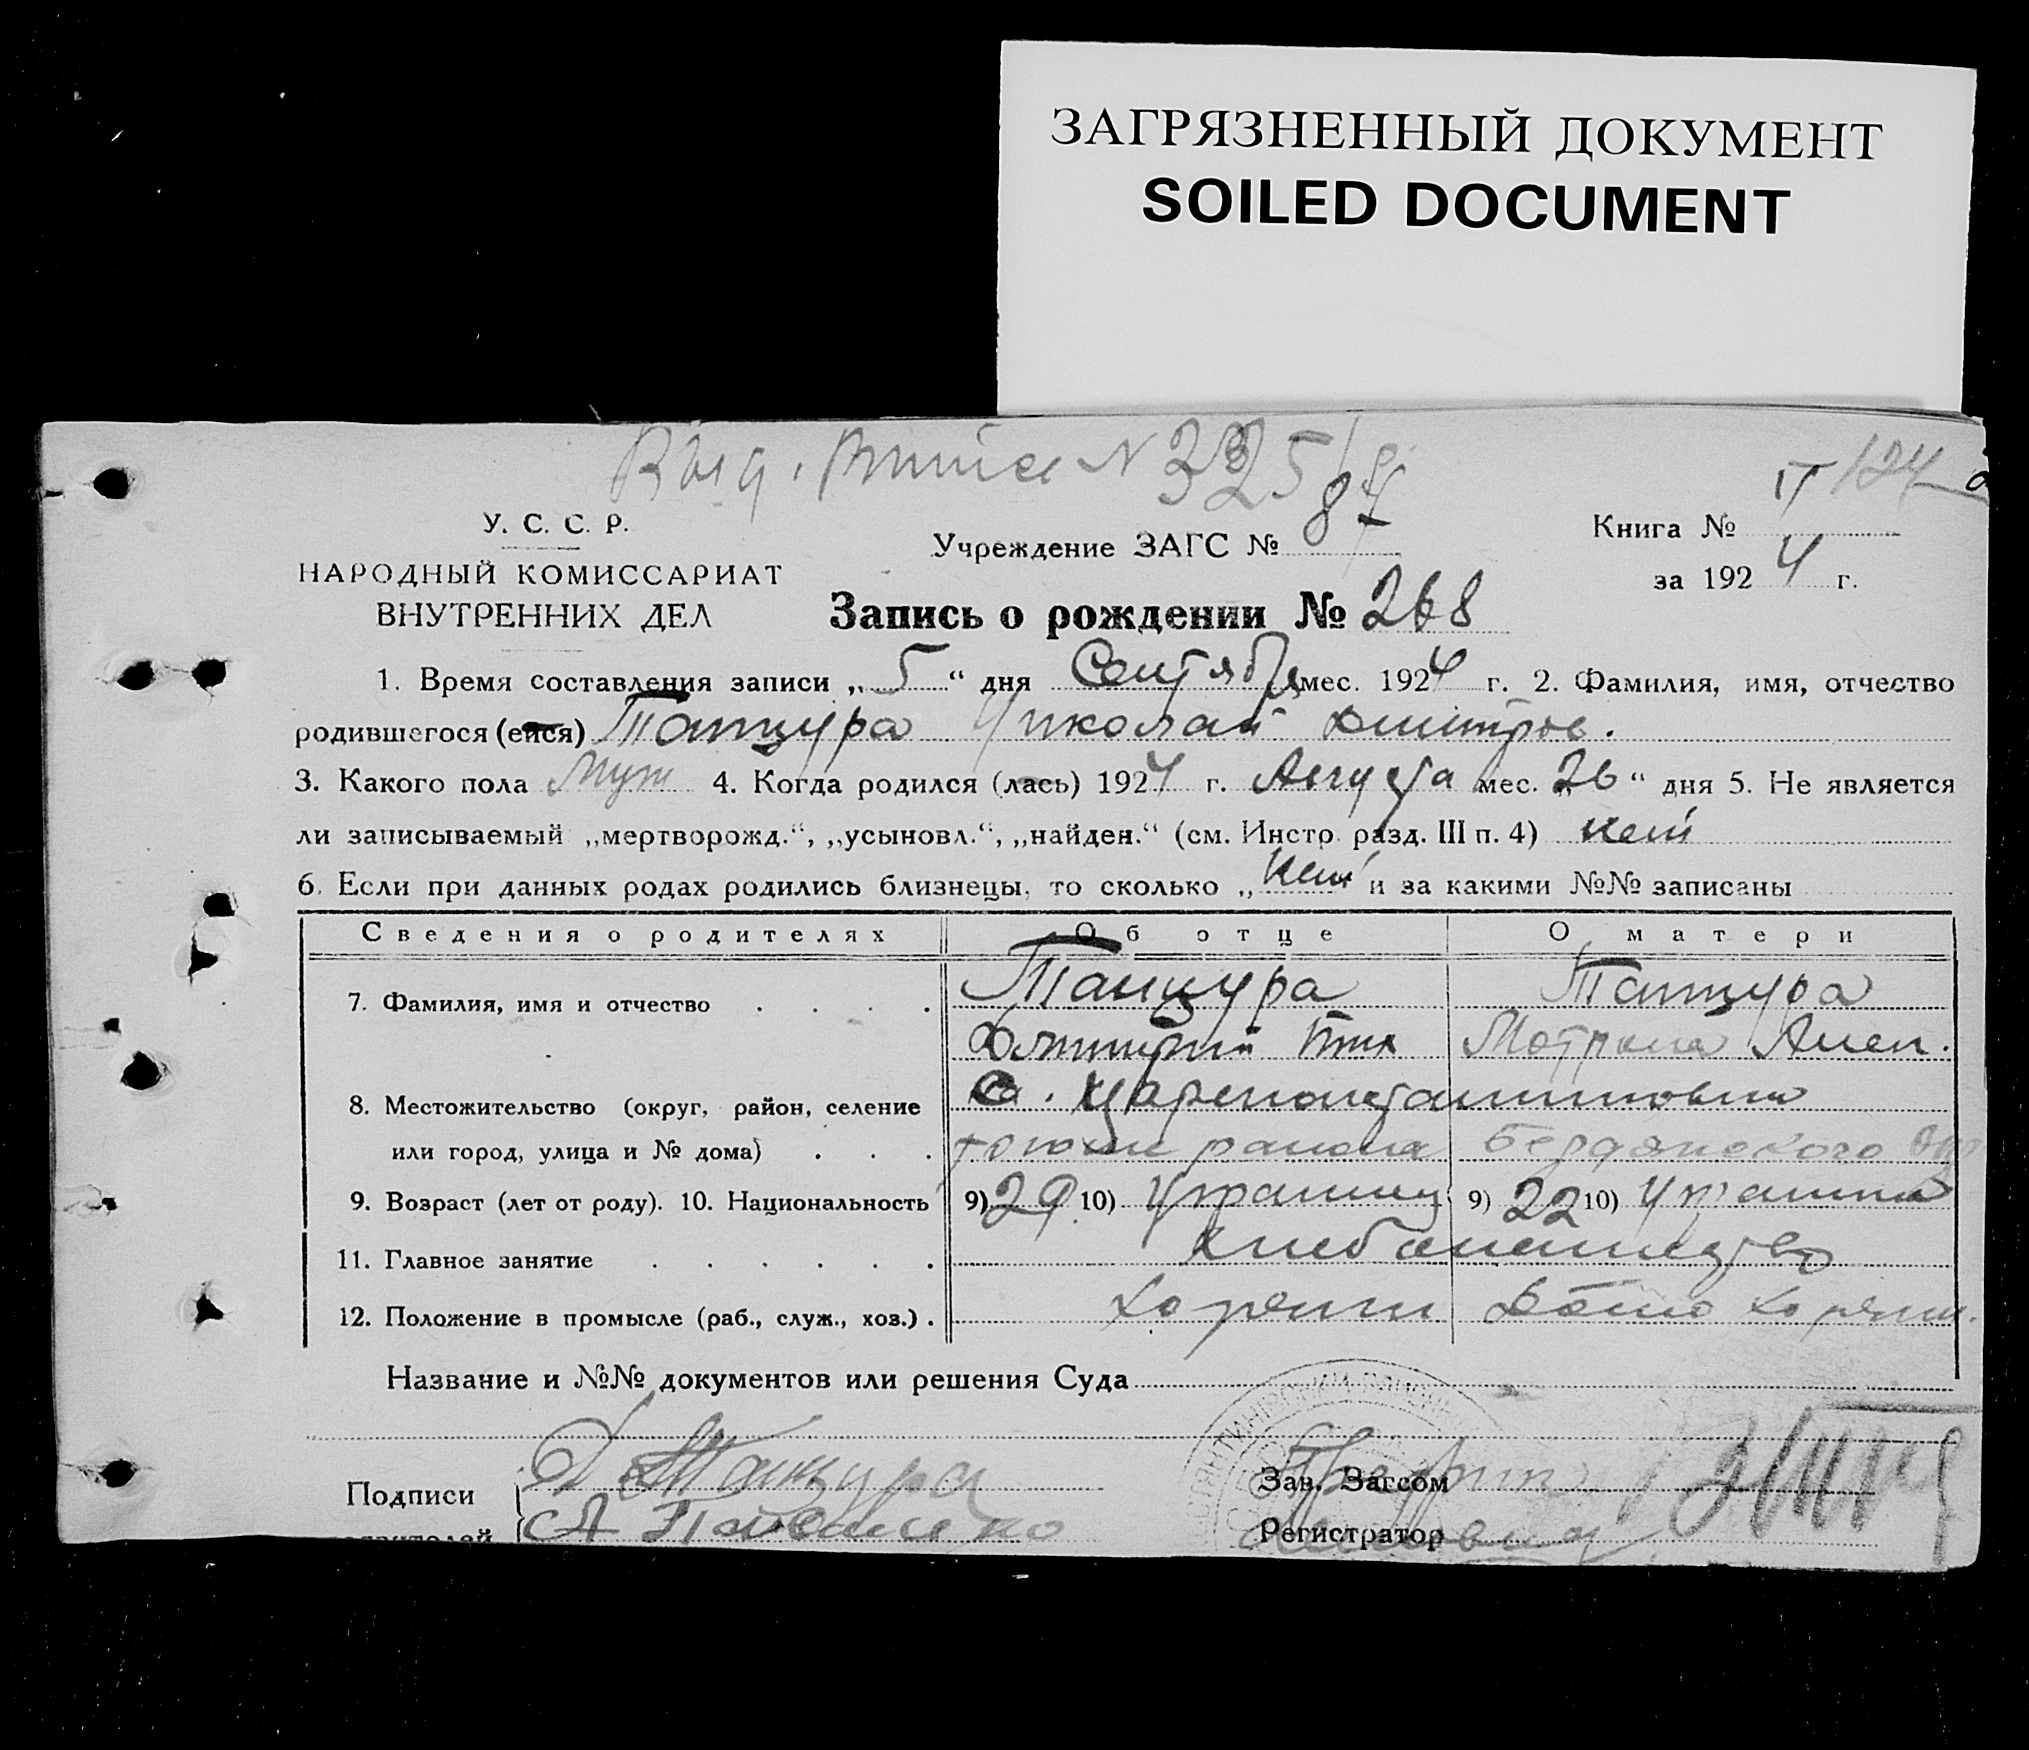 ЗАГРЯЗНЕННЫЙ ДОКУМЕНТ
SOILED DOCUMENT
124
У. С. С. Р.
НАРОДНЫЙ КОМИССАРИАТ
ВНУТРЕННИХ ДЕЛ
Учреждение ЗАГС № 87
Книга №
за 1924 г.
Запись о рождении № 268
1. Время составления записи „5“ дня Сентября мес. 1924 г. 2. Фамилия, имя, отчество
родившегося (ейся) Танцура Николай Дмитров.
3. Какого пола Муж 4. Когда родился (лась) 1924 г. Августа мес. „26“ дня 5. Не является
ли записываемый „мертворожд.“, „усыновл.“, „найден.“ (см. Инстр. разд. III п. 4) нет
6. Если при данных родах родились близнецы, то сколько „нет“ и за какими №№ записаны
Сведения о родителях Об отце О матери
7. Фамилия, имя и отчество Танцура Танцура
Дмитрий Мотрона
8. Местожительство (округ, район, селение с. Цареконстантиновки
или город, улица и № дома) района Бердянского
9. Возраст (лет от роду). 10. Национальность 9) 29 10) Украинец 9) 22 10) Украинка
11. Главное занятие хлебопашество
12. Положение в промысле (раб., служ., хоз.)
Название и №№ документов или решения Суда
Подписи Танцура
Зав. Загсом
Регистратор